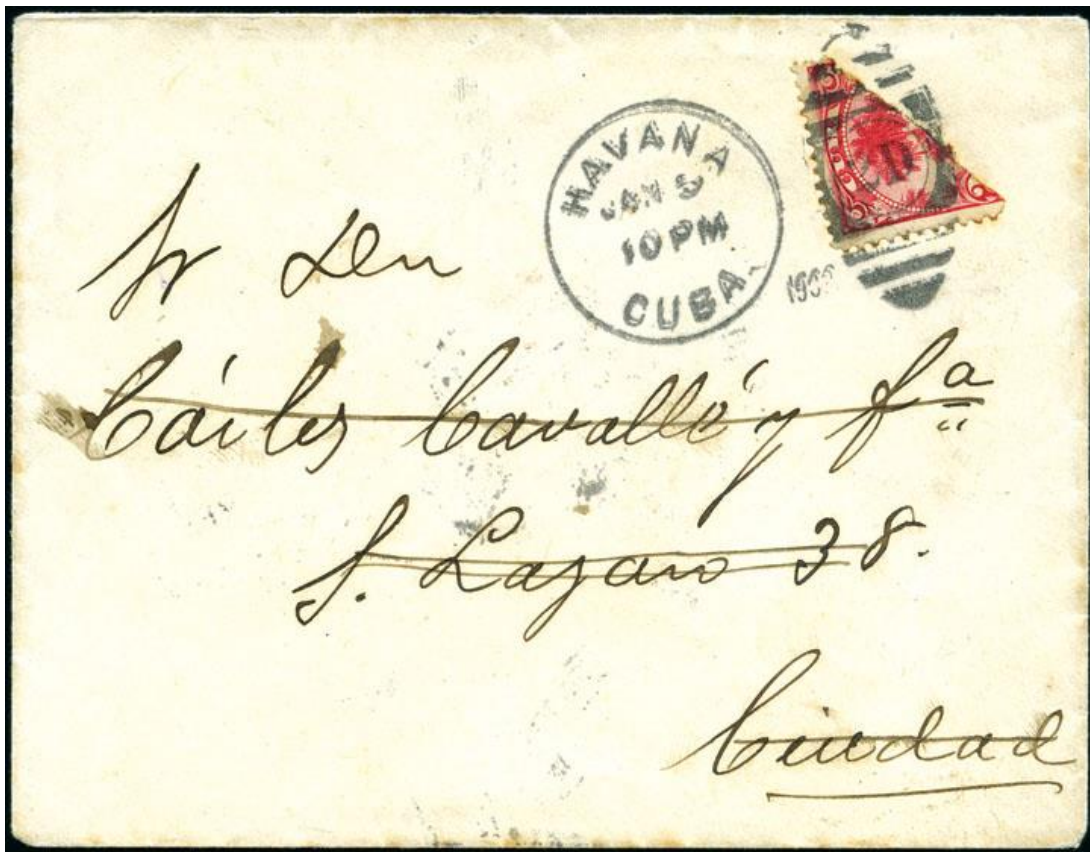 HAVANA
JAN 5
10 PM
CUBA.
Sr Don
Cárlos Cavallé y Sª
S. Lazaro 38.
Ciudad